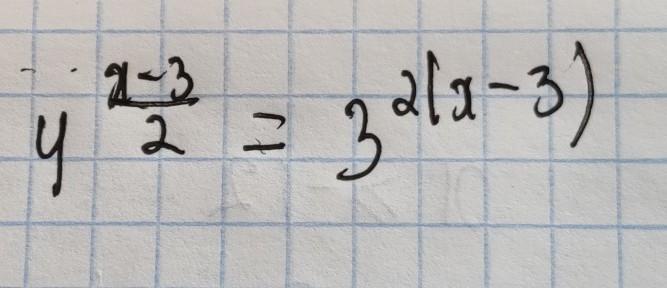 4^{\frac{x-3}{2}} = 3^{2(x-3)}